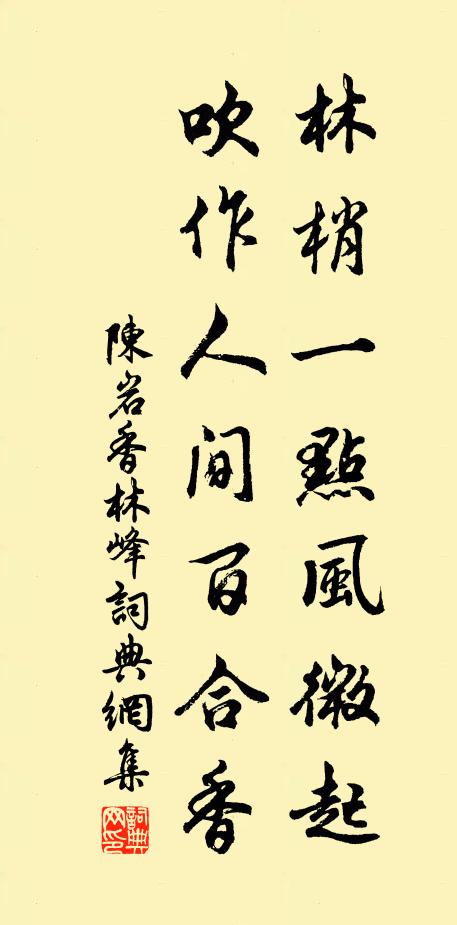 林梢一點風微起
吹作人间百合香
陳岩香林峰詞典網集
詞典網印